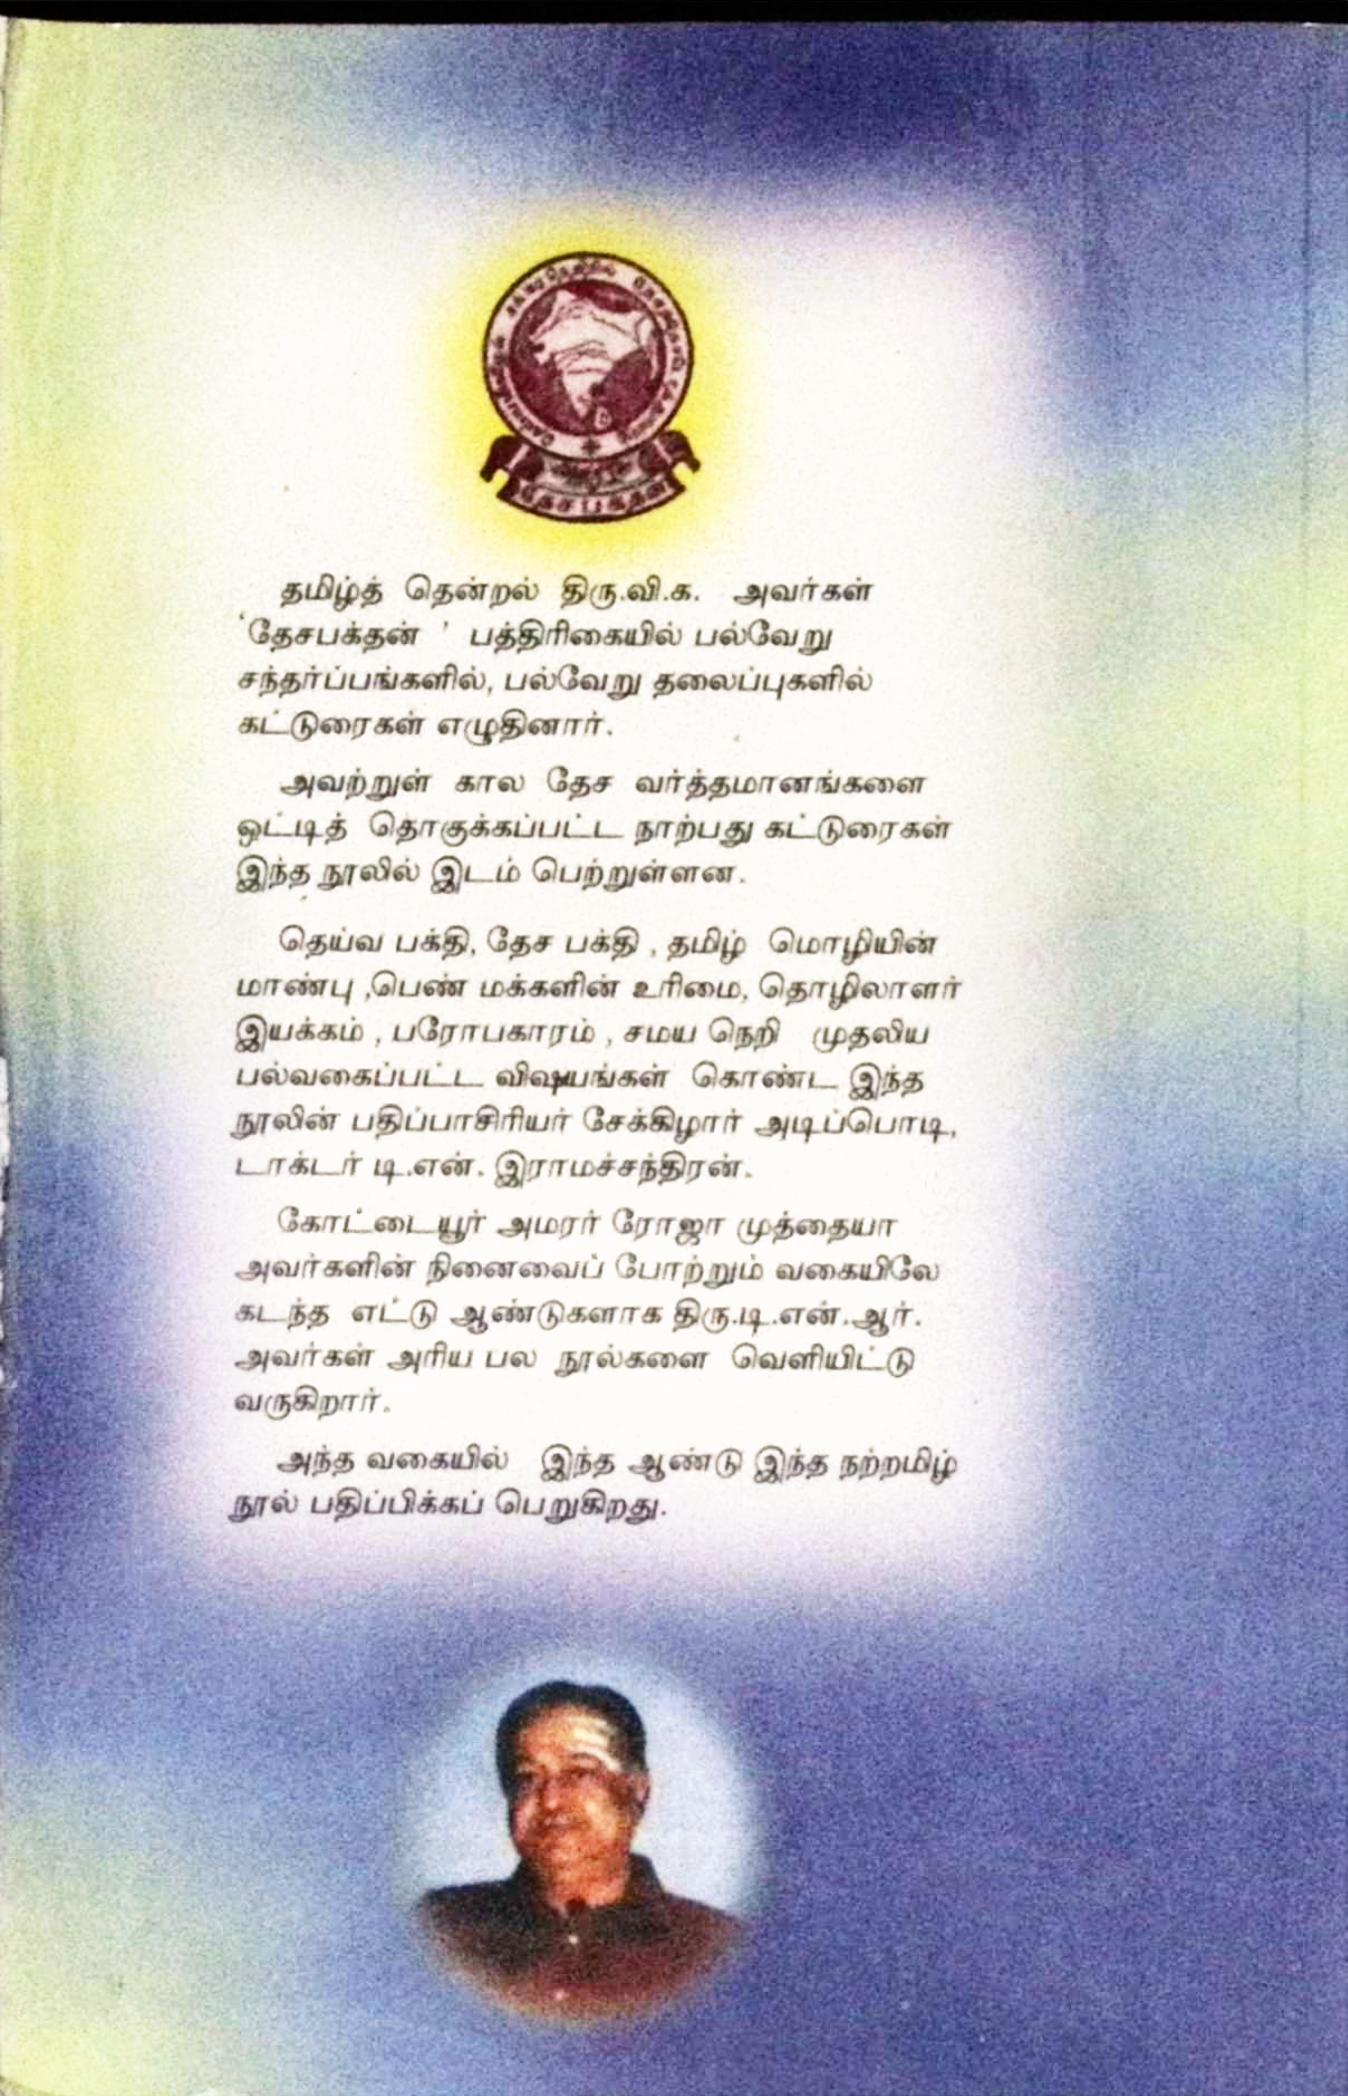 தேசபக்தன்
தமிழ்த் தென்றல் திரு.வி.க. அவர்கள்
‘தேசபக்தன் ’ பத்திரிகையில் பல்வேறு
சந்தர்ப்பங்களில், பல்வேறு தலைப்புகளில்
கட்டுரைகள் எழுதினார்.
அவற்றுள் கால தேச வர்த்தமானங்களை
ஒட்டித் தொகுக்கப்பட்ட நாற்பது கட்டுரைகள்
இந்த நூலில் இடம் பெற்றுள்ளன.
தெய்வ பக்தி, தேச பக்தி , தமிழ் மொழியின்
மாண்பு ,பெண் மக்களின் உரிமை, தொழிலாளர்
இயக்கம் , பரோபகாரம் , சமய நெறி முதலிய
பல்வகைப்பட்ட விஷயங்கள் கொண்ட இந்த
நூலின் பதிப்பாசிரியர் சேக்கிழார் அடிப்பொடி,
டாக்டர் டி.என். இராமச்சந்திரன்.
கோட்டையூர் அமரர் ரோஜா முத்தையா
அவர்களின் நினைவைப் போற்றும் வகையிலே
கடந்த எட்டு ஆண்டுகளாக திரு.டி.என்.ஆர்.
அவர்கள் அரிய பல நூல்களை வெளியிட்டு
வருகிறார்.
அந்த வகையில் இந்த ஆண்டு இந்த நற்றமிழ்
நூல் பதிப்பிக்கப் பெறுகிறது.